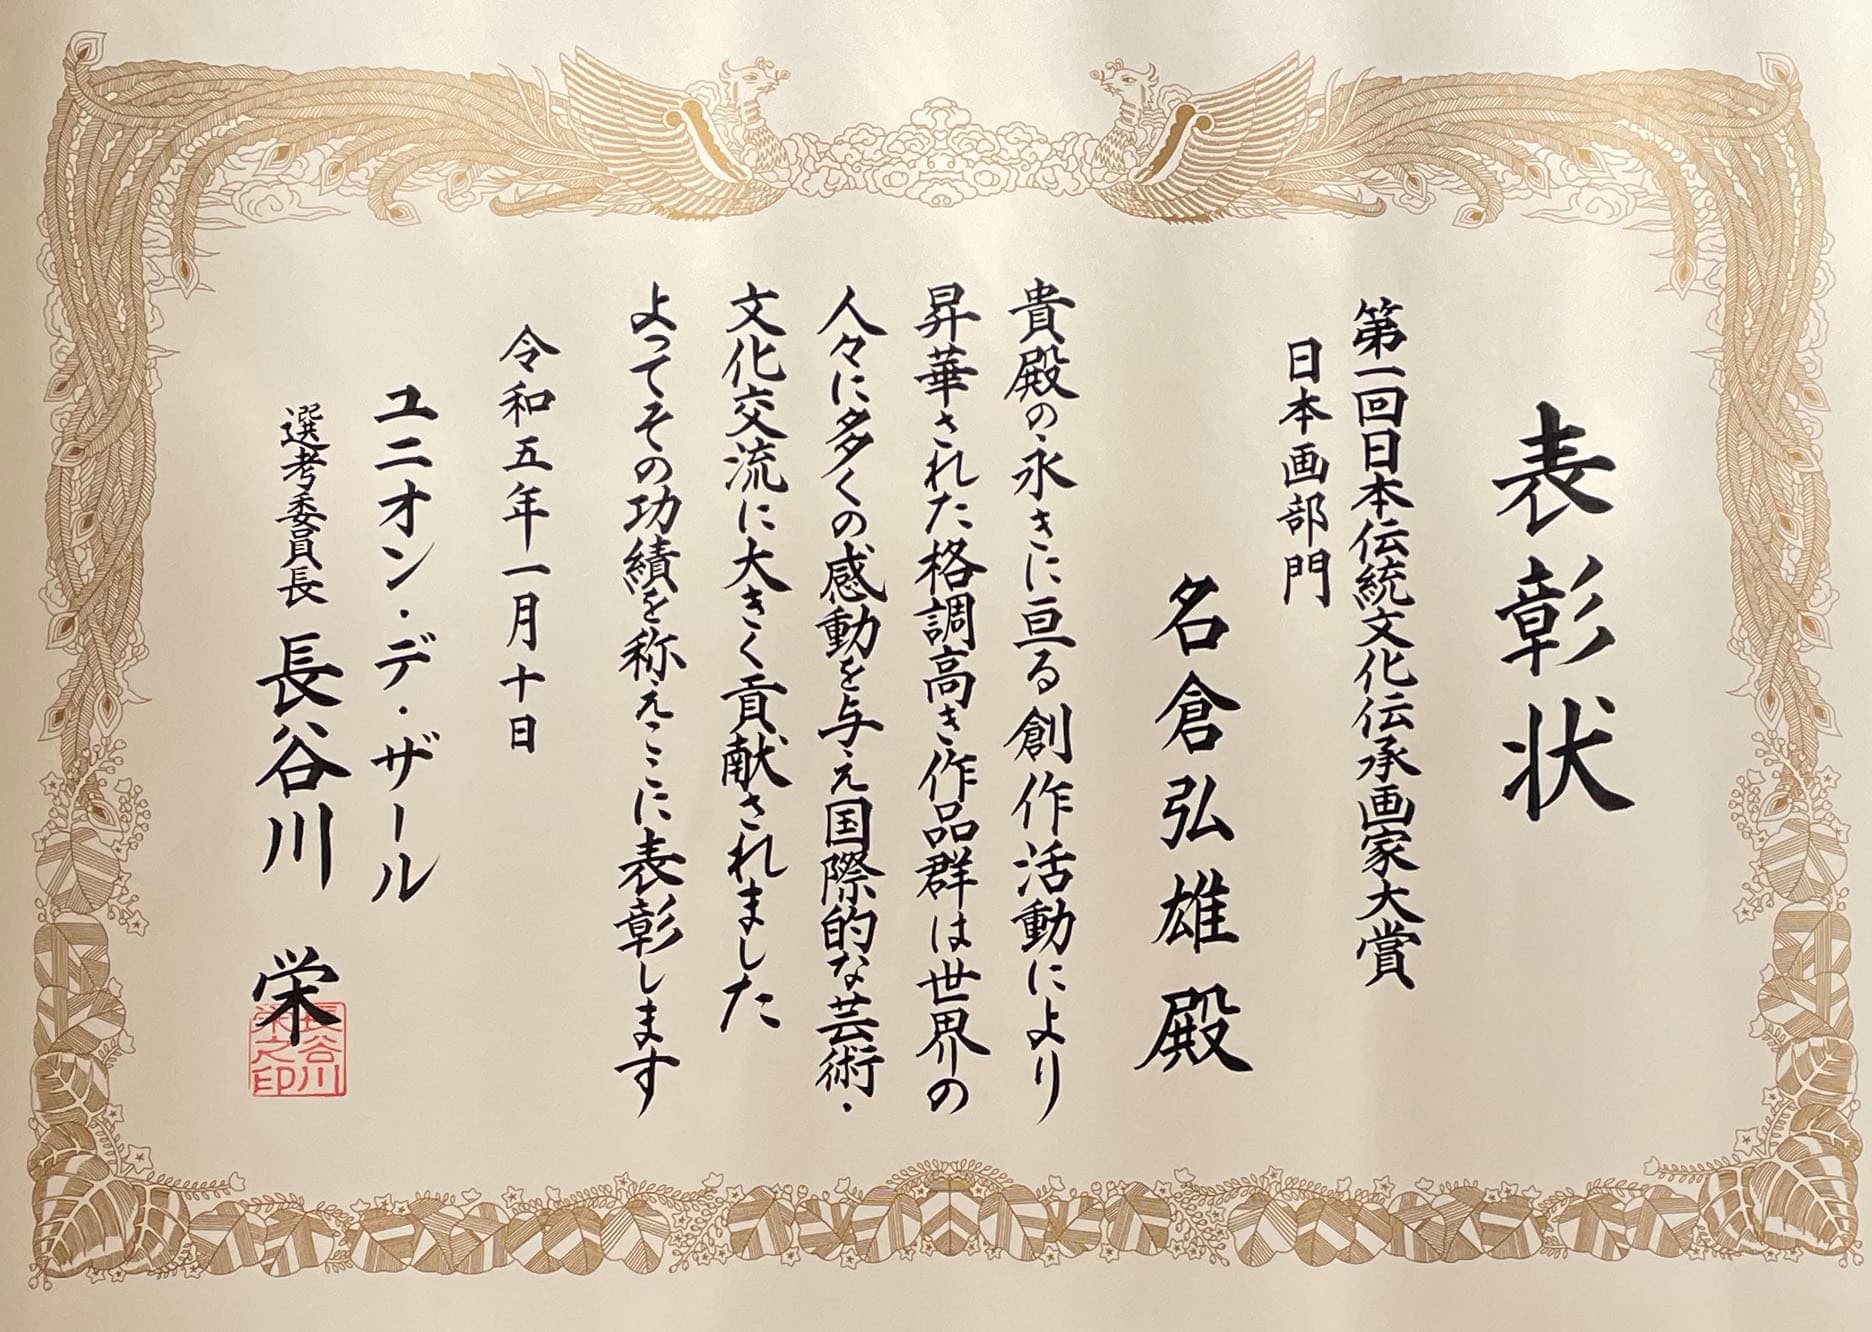 表彰状
第一回日本伝統文化伝承画家大賞
日本画部門
名倉弘雄殿
貴殿の永きに亘る創作活動により
昇華された格調高き作品群は世界の
人々に多くの感動を与え国際的な芸術・
文化交流に大きく貢献されました
よってその功績を称えここに表彰します
令和五年一月十日
ユニオン・デ・ザール
選考委員長 長谷川 栄
長谷川
栄之印